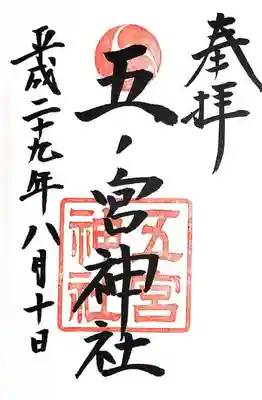 奉拝
五ノ宮神社
五宮神社
平成二十九年八月十日